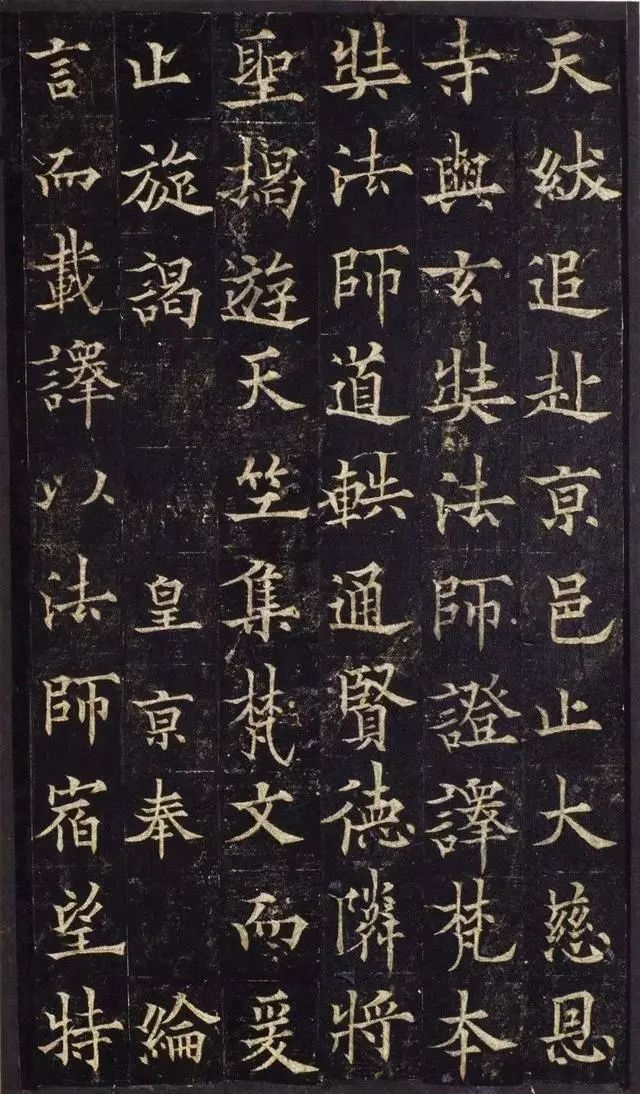 天紱追赴亰邑止大慈恩
寺與玄奘法師證譯梵本
奘法師道軼通賢徳隣將
聖揭遊天竺集梵文而爰
止旋謁　　皇亰奉　綸
言而載譯以法師宿望特